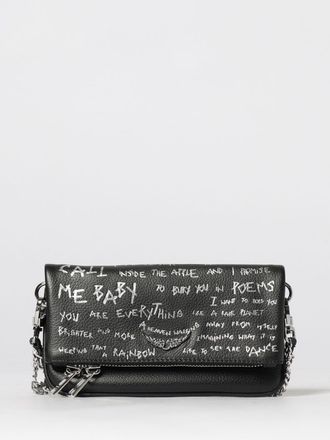 CALL INSIDE THE APPLE AND I PROMISE
ME BABY TO BURY YOU IN POEMS
I WANT TO HOLD YOU
YOU ARE EVERYTHING LIKE A RARE PLANET
BRIGHTER AND MORE HEAVEN AWAY FROM
IMAGINING WHAT IT IS
MEETING THAT A RAINBOW LIKE TO SEE THE DANCE